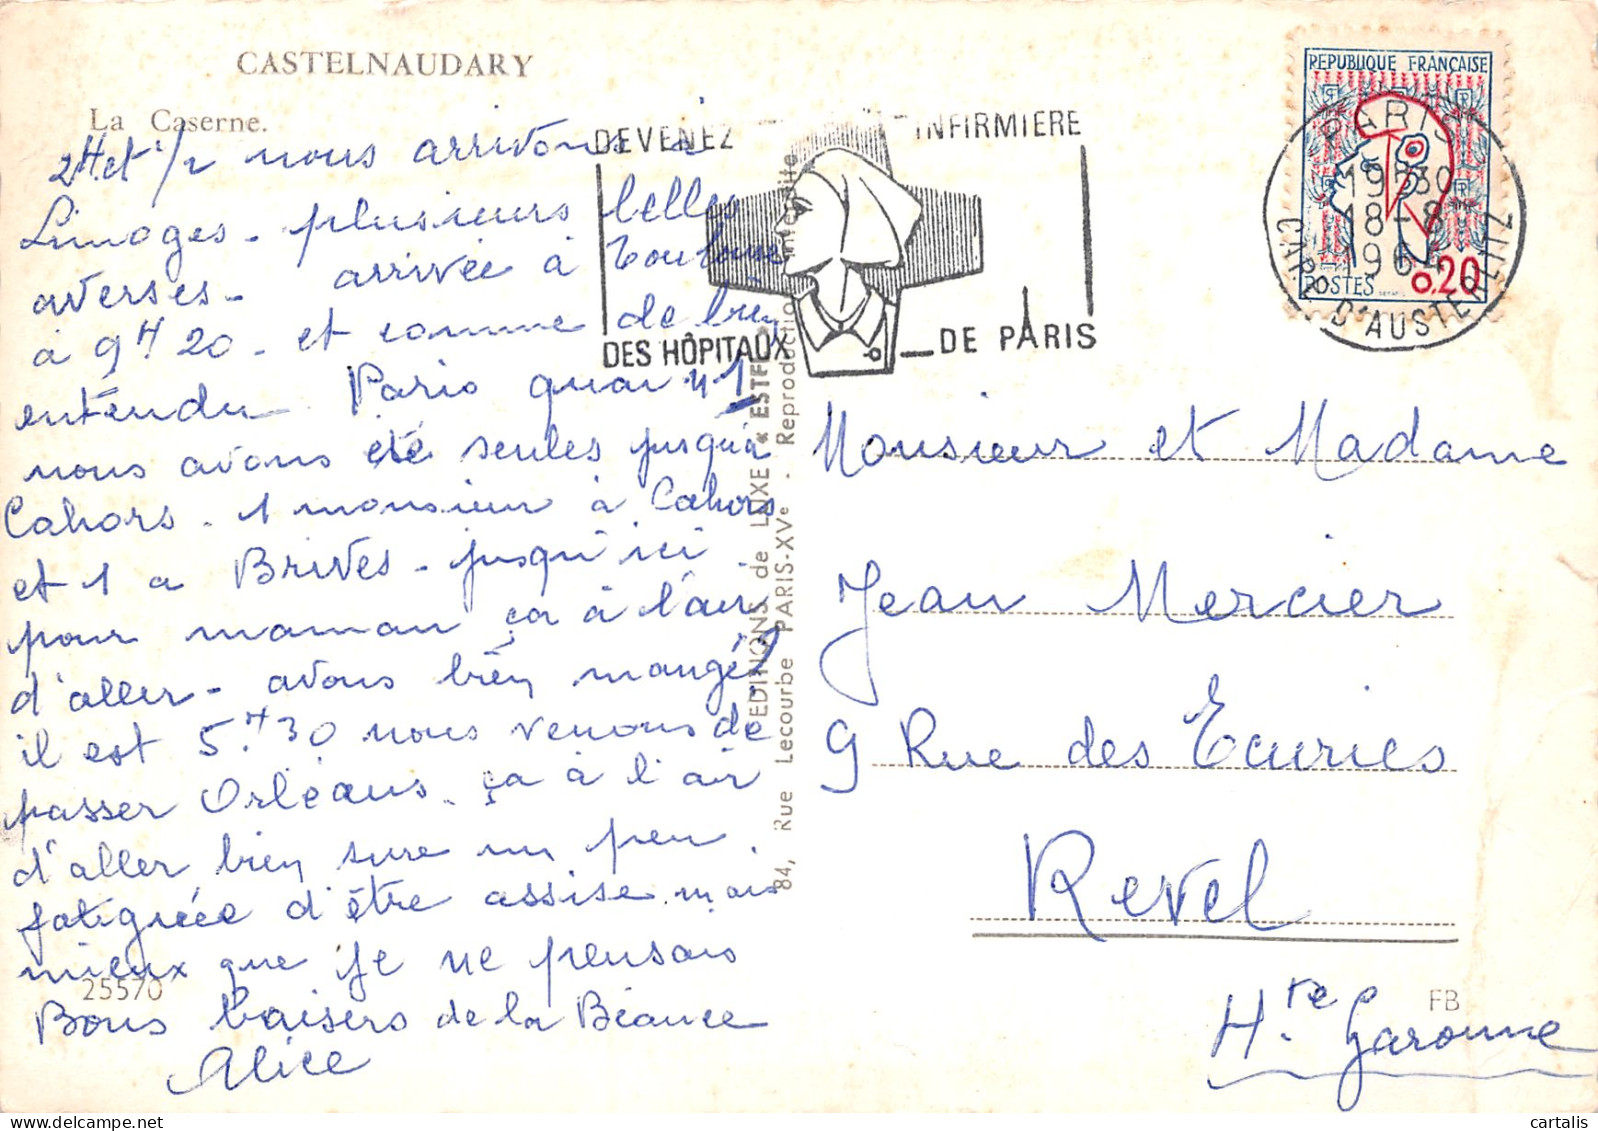 CASTELNAUDARY
La Caserne.
2H et 1/2 nous arrivons à
Limoges - plusieurs belles
averses - arrivée à Toulouse
à 9H 20 - et comme de bien
entendu Paris quai n° 1
nous avons été seules jusqu'à
Cahors - 1 monsieur à Cahors
et 1 a Brives - jusqu'ici
pour maman ça à l'air
d'aller - avons bien mangé
il est 5H30 nous venons de
passer Orléans. ça à l'air
d'aller bien sure un peu
fatiguée d'être assise mais
mieux que je ne pensais
Bons baisers de la Béance
Alice
25570
DEVENEZ INFIRMIERE
DES HÔPITAUX DE PARIS
EDITIONS de LUXE « ESTEL
84, Rue Lecourbe PARIS-XVe - Reproduction interdite
REPUBLIQUE FRANÇAISE
POSTES 0,20
PARIS
19H30
18-8
1964
GARE D'AUSTERLITZ
Monsieur et Madame
Jean Mercier
9 Rue des Ecuries
Revel
Hte Garonne
FB
cartalis
delcampe.net